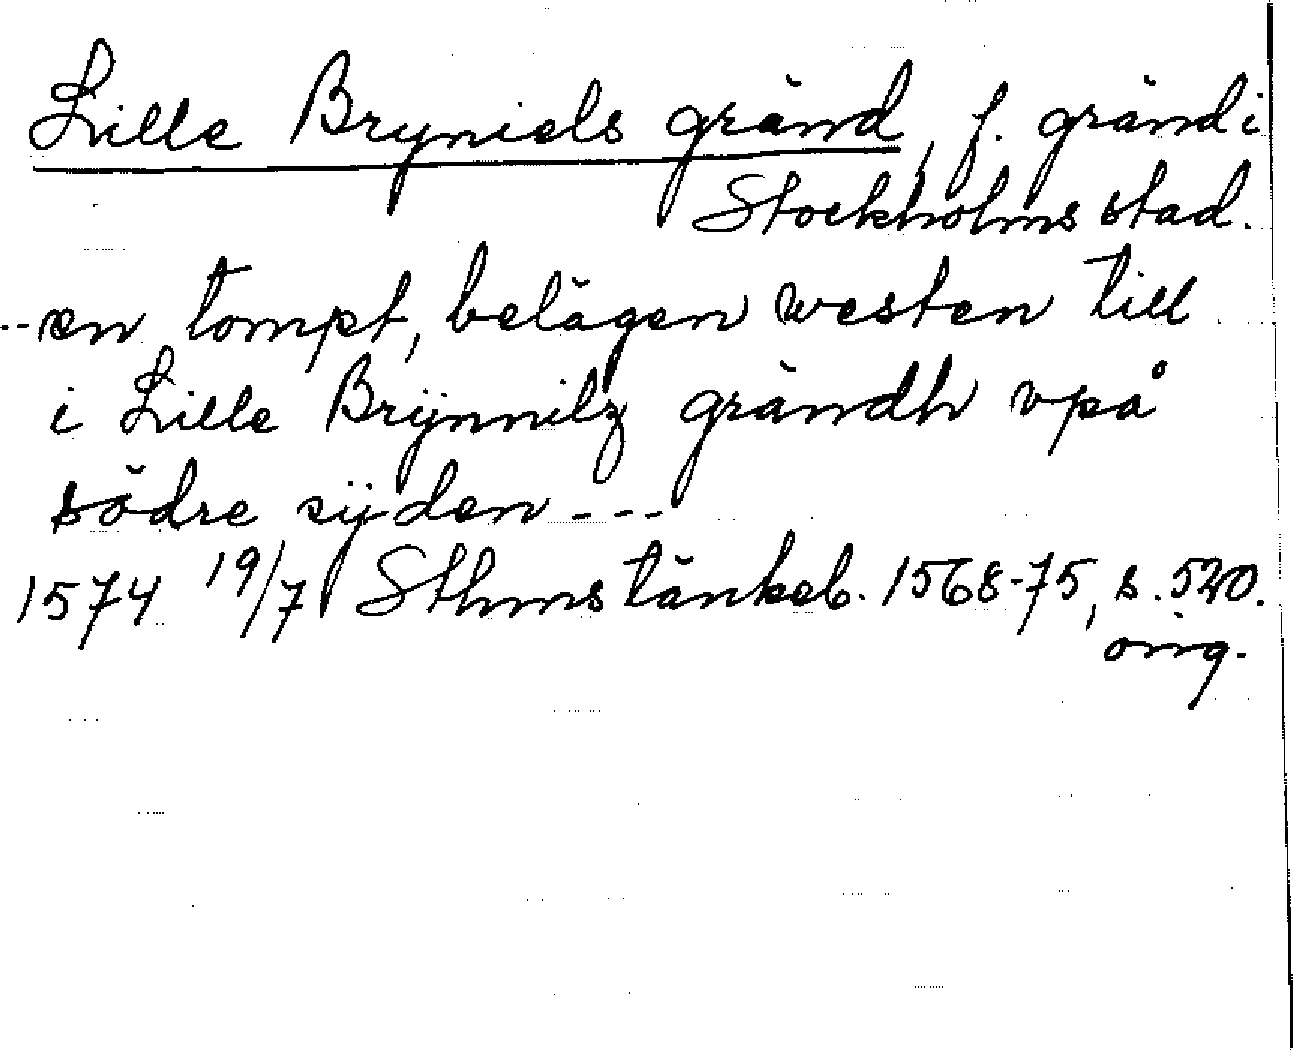 Lille Bryniels gränd, f. gränd i
Stockholms stad.
--en tompt, belägen westen till
i Lille Brÿnnilz grändh vpå
södre sÿden ---
1574 19/7 Sthms tänkeb. 1568-75, s. 520.
orig.